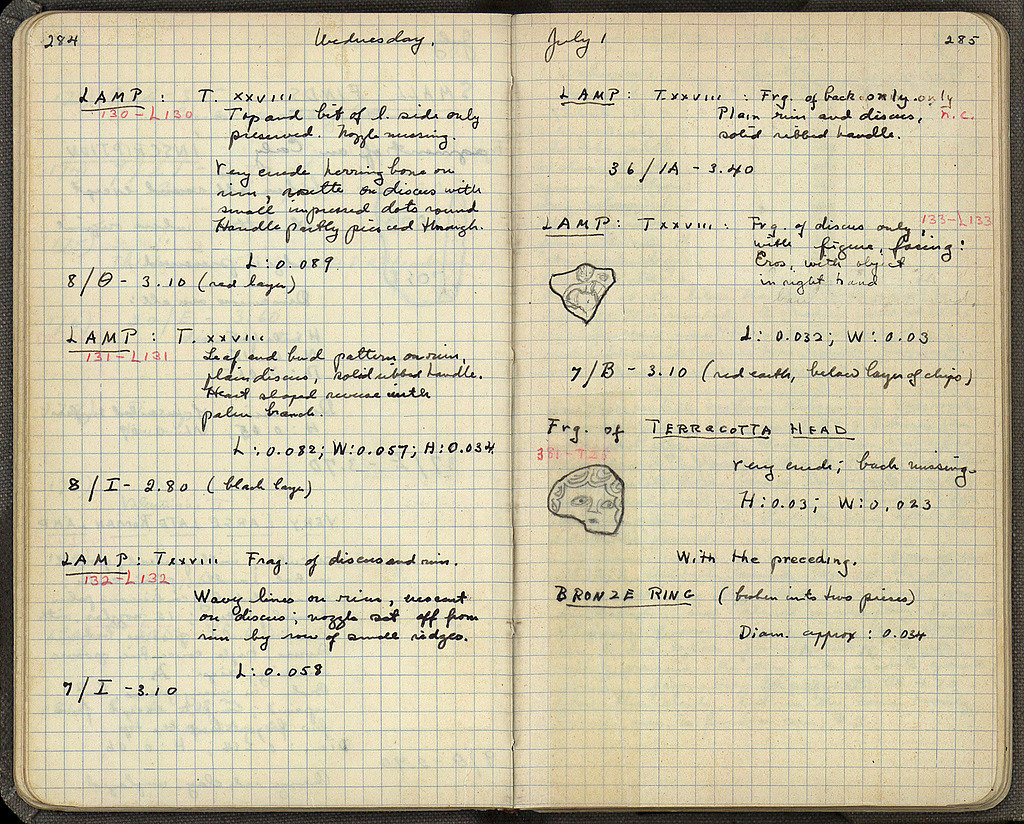 284
Wednesday.
LAMP : T. XXVIII
130-L130
Top and bit of l. side only
preserved. Nozzle missing.
Very crude herring bone on
rim, rosette on discus with
small impressed dots round
Handle partly pierced through.
L: 0.089
8/Θ - 3.10 (red layer)
LAMP : T. XXVIII
131-L131
Leaf and bud pattern on rim,
plain discus, solid ribbed handle.
Heart shaped reverse with
palm branch.
L: 0.082; W: 0.057; H: 0.034
8/I - 2.80 (black layer)
LAMP: T XXVIII Frag. of discus and rim.
132-L132
Wavy lines on rim, crescent
on discus; nozzle set off from
rim by row of small ridges.
L: 0.058
7/I - 3.10
July 1
285
LAMP: T XXVIII : Frg. of back only. only
n.c.
Plain rim and discus,
solid ribbed handle.
36/1A - 3.40
LAMP: T XXVIII : Frg. of discus only,
133-L133
with figure, facing:
Eros, with object
in right hand
L: 0.032; W: 0.03
7/B - 3.10 (red earth, below layer of chips)
Frg. of TERRACOTTA HEAD
381-T25
very crude; back missing.
H: 0.03; W: 0.023
With the preceding.
BRONZE RING (broken into two pieces)
Diam. approx: 0.034